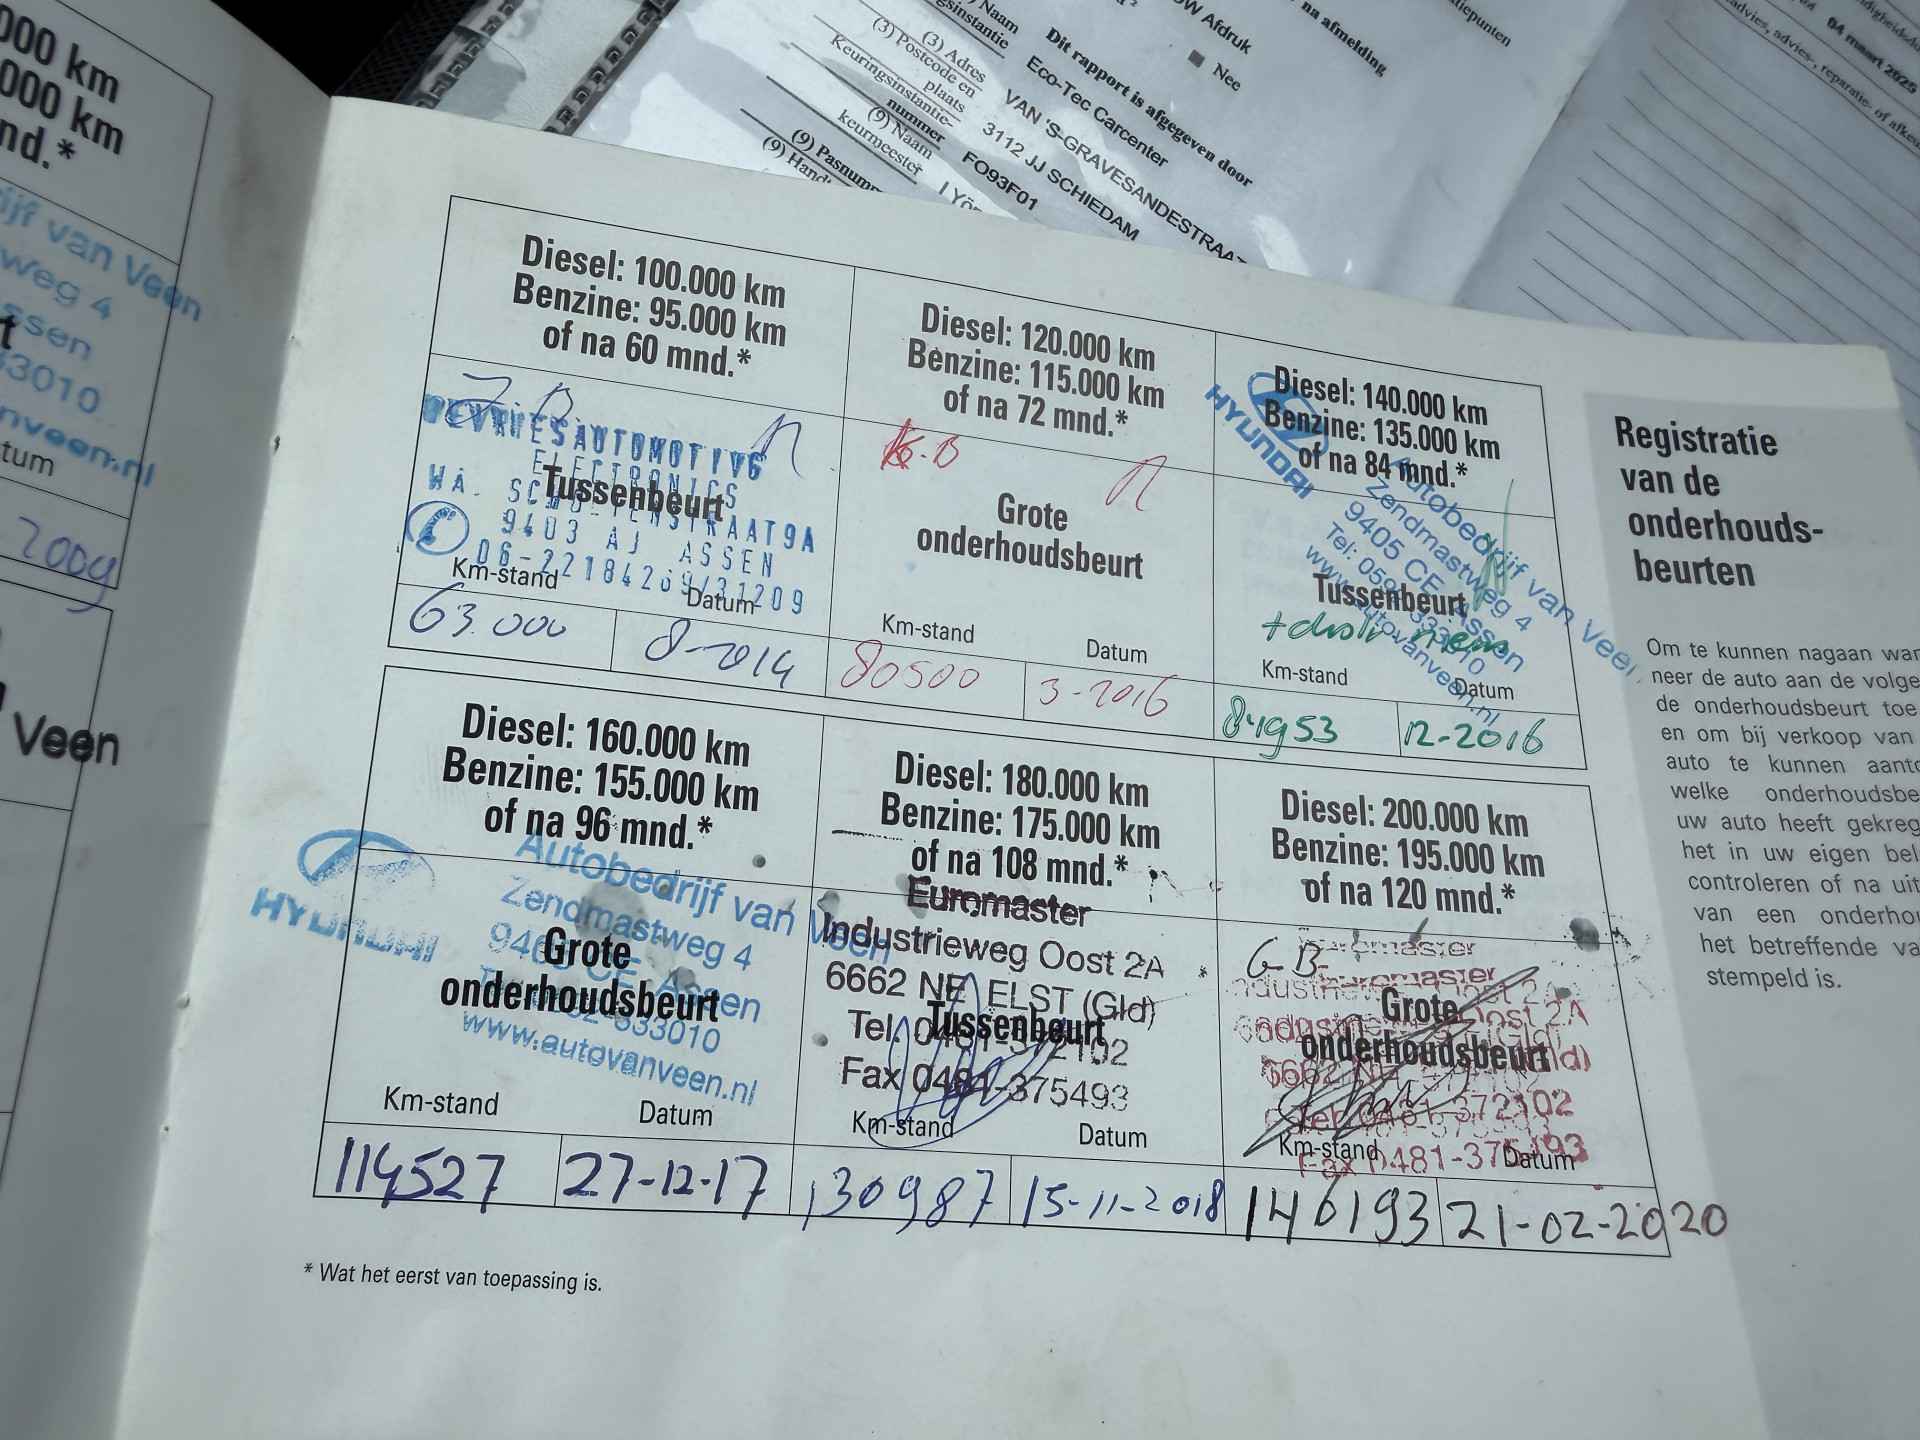 000 km
000 km
nd.*
ijf van Veen
weg 4
ssen
33010
nveen.nl
tum
2009
Veen
OW Afdruk
na afmelding
Nee
Naam
(3) Adres
(3) Postcode en
plaats
Keuringsinstantie-
nummer
(9) Naam
keurmeester
(9) Pasnumm
Dit rapport is afgegeven door
Eco-Tec Carcenter
VAN 'S-GRAVESANDESTRAAT
3112 JJ SCHIEDAM
FO93F01
04 maart 2025
advies, advies-, reparatie- of afkeu
Diesel: 100.000 km
Benzine: 95.000 km
of na 60 mnd.*
DEVRIESAUTOMOTIVE
ELECTRONICS
Tussenbeurt
WA. SCHOLTENSTRAAT9A
9403 AJ ASSEN
06-22184209/31209
Km-stand
Datum
63.000
8-2014
Diesel: 120.000 km
Benzine: 115.000 km
of na 72 mnd.*
G.B
Grote
onderhoudsbeurt
Km-stand
Datum
80500
3-2016
Diesel: 140.000 km
Benzine: 135.000 km
of na 84 mnd.*
HYUNDAI
Autobedrijf van Veen
Zendmastweg 4
9405 CE Assen
www.autovanveen.nl
Tussenbeurt
Km-stand
Datum
12-2016
Diesel: 160.000 km
Benzine: 155.000 km
of na 96 mnd.*
HYUNDAI
Autobedrijf van Veen
Zendmastweg 4
9405 CE Assen
www.autovanveen.nl
Grote
onderhoudsbeurt
Km-stand
Datum
114527
27-12-17
Diesel: 180.000 km
Benzine: 175.000 km
of na 108 mnd.*
Euromaster
Industrieweg Oost 2A
6662 NE ELST (Gld)
Tussenbeurt
Tel. 0481-372102
Fax 0481-375493
Km-stand
Datum
130987
15-11-2018
Diesel: 200.000 km
Benzine: 195.000 km
of na 120 mnd.*
G B
Euromaster
Grote
onderhoudsbeurt
Tel 0481-372102
Fax 0481-375493
Km-stand
Datum
146193
21-02-2020
* Wat het eerst van toepassing is.
Registratie
van de
onderhouds-
beurten
Om te kunnen nagaan wan
neer de auto aan de volge
de onderhoudsbeurt toe
en om bij verkoop van
auto te kunnen aanto
welke onderhoudsbe
uw auto heeft gekreg
het in uw eigen bel
controleren of na uit
van een onderhou
het betreffende va
stempeld is.